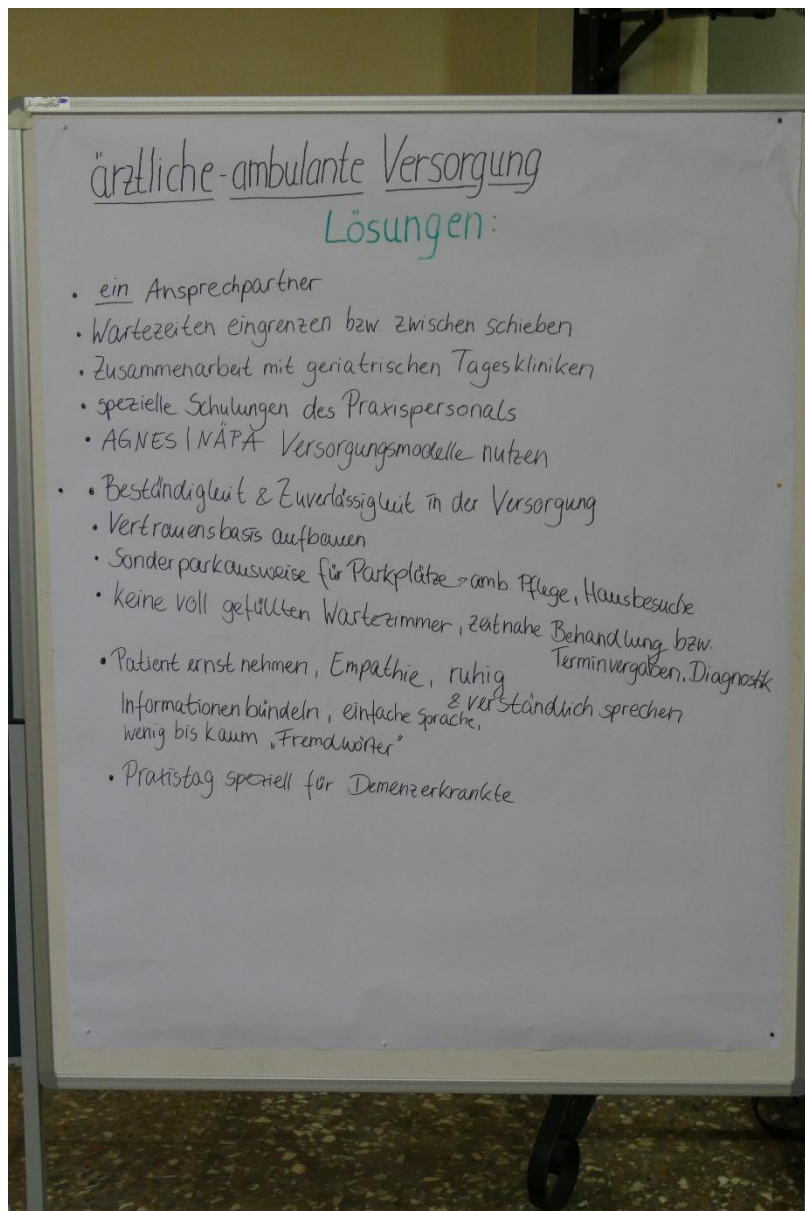 ärztliche-ambulante Versorgung
Lösungen:
• ein Ansprechpartner
• Wartezeiten eingrenzen bzw. zwischen schieben
• Zusammenarbeit mit geriatrischen Tageskliniken
• spezielle Schulungen des Praxispersonals
• AGNES | NÄPA Versorgungsmodelle nutzen
• Beständigkeit & Zuverlässigkeit in der Versorgung
• Vertrauensbasis aufbauen
• Sonderparkausweise für Parkplätze → amb. Pflege, Hausbesuche
• keine voll gefüllten Wartezimmer, zeitnahe Behandlung bzw.
Terminvergaben, Diagnostik
• Patient ernst nehmen, Empathie, ruhig
& verständlich sprechen
Informationen bündeln, einfache Sprache,
wenig bis kaum „Fremdwörter"
• Praxistag speziell für Demenzerkrankte